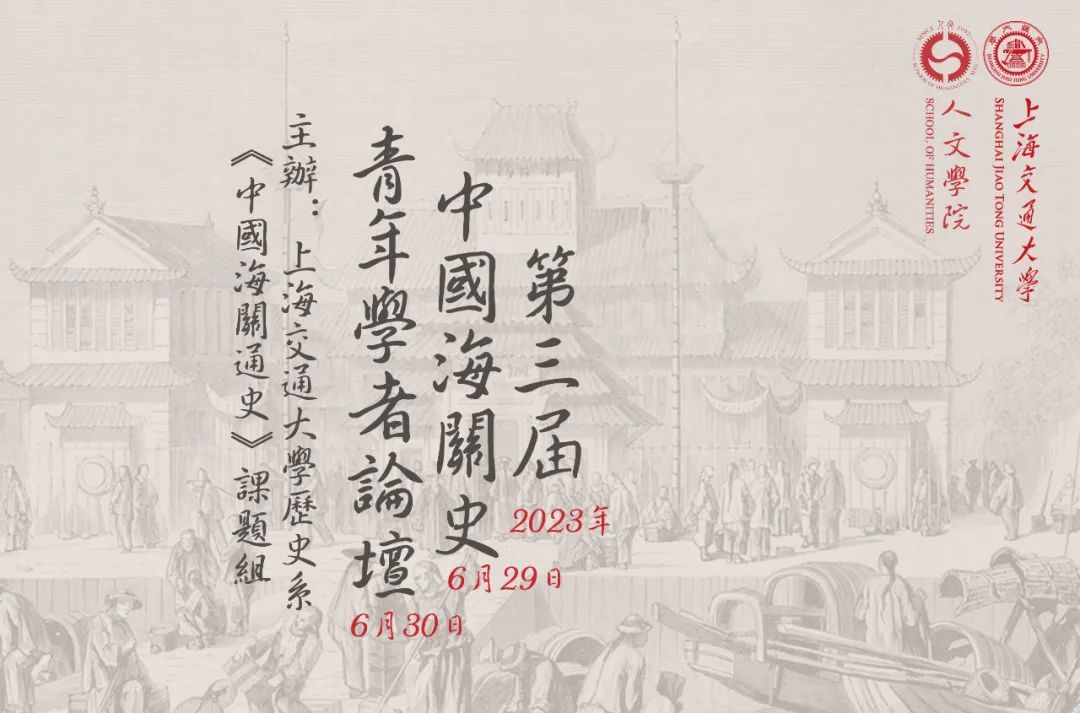 上海交通大學
SHANGHAI JIAO TONG UNIVERSITY
人文學院
SCHOOL OF HUMANITIES
第三届
2023年
中國海關史
6月29日
青年學者論壇
6月30日
主辦：上海交通大學歷史系
《中國海關通史》課題組